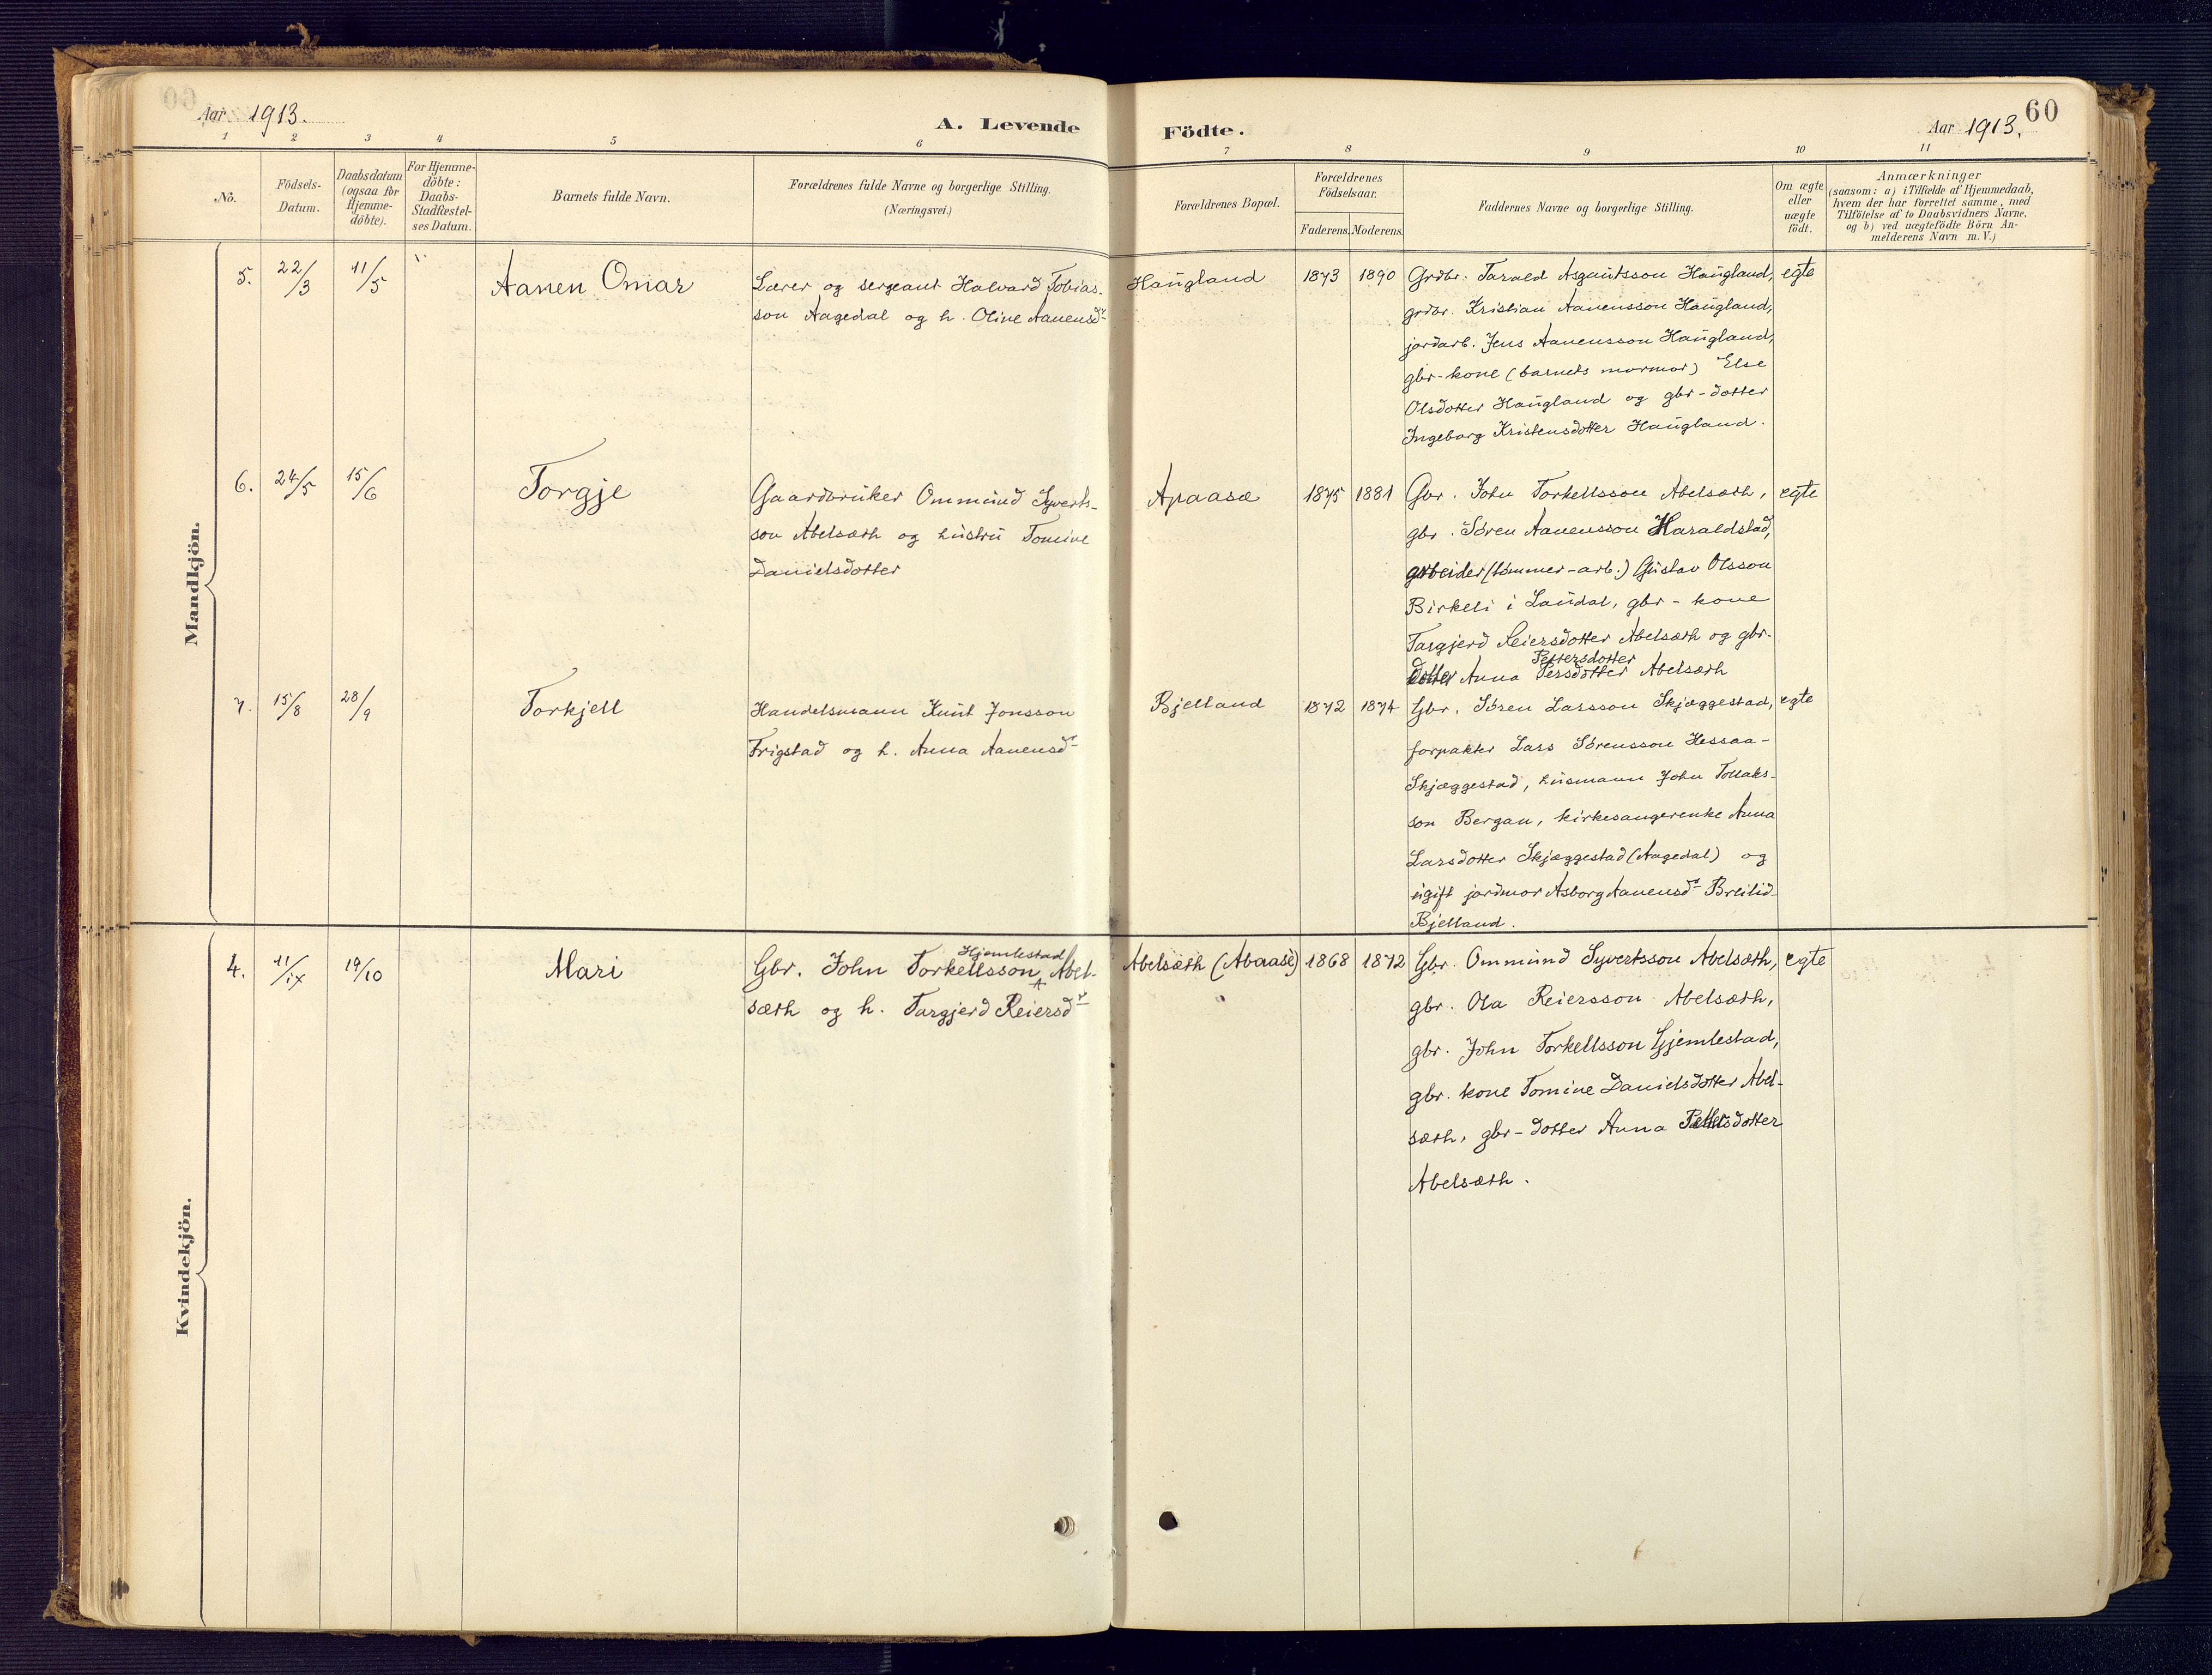 Aar 1913.
A. Levende
Födte.
Aar 1913.
60
1
2
3
4
5
6
7
8
9
10
11
No.
Födsels-
Datum.
Daabsdatum
(ogsaa for
Hjemme-
döbte).
For Hjemme-
döbte:
Daabs-
Stadfæstel-
ses Datum.
Barnets fulde Navn.
Forældrenes fulde Navne og borgerlige Stilling.
(Næringsvei.)
Forældrenes Bopæl.
Forældrenes
Födselsaar.
Faderens.
Moderens.
Faddernes Navne og borgerlige Stilling.
Om ægte
eller
uægte
födt.
Anmærkninger
(saasom: a) i Tilfælde af Hjemmedaab,
hvem der har forrettet samme, med
Tilföielse af to Daabsvidners Navne,
og b) ved uægtefödte Börn An-
melderens Navn m. V.)
Mandkjön.
5. 22/3 11/5 Aanen Omar
Lærer og sergeant Halvard Tobias-
son Aagedal og h. Oline Aanensdr
Haugland 1873 1890
Grdbr. Tarald Asgautsson Haugland, egte
grdbr. Kristian Aanensson Haugland,
jordarb. Jens Aanensson Haugland,
gbr-kone (barnets mormor) Else
Olsdotter Haugland og gbr-dotter
Ingeborg Kristensdotter Haugland.
6. 24/5 15/6 Torgje
Gaardbruker Ommund Syverts-
son Abelsæth og hustru Tomine
Danielsdotter
Apaasæ 1875 1881
Gbr. John Torkellsson Abelsæth, egte
gbr. Søren Aanensson Haraldstad,
arbeider (tømmer-arb.) Gustav Olsson
Birkeli i Laudal, gbr-kone
Targjerd Reiersdotter Abelsæth og gbr-
Pettersdotter
dotter Anna Persdotter Abelsæth
7. 15/8 28/9 Torkjell
Handelsmann Knut Jonsson
Frigstad og h. Anna Aanensdr
Bjelland 1872 1874
Gbr. Søren Larsson Skjæggestad, egte
forpakter Lars Sørensson Hessaa-
Skjæggestad, husmann John Tollaks-
son Bergan, kirkesangerenke Anna
Larsdotter Skjæggestad (Aagedal) og
ugift jordmor Asborg Aanensdr Breilid-
Bjelland.
Kvindekjön.
4. 11/IX 19/10 Mari
Hjemlestad
Gbr. John Torkellsson Abel-
sæth og h. Targjerd Reiersdr
Abelsæth (Abaasè) 1868 1872
Gbr. Ommund Syvertsson Abelsæth, egte
gbr. Ola Reiersson Abelsæth,
gbr. John Torkellsson Gjemlestad,
gbr. kone Tomine Danielsdotter Abel-
sæth, gbr-dotter Anna Pettersdotter
Abelsæth.